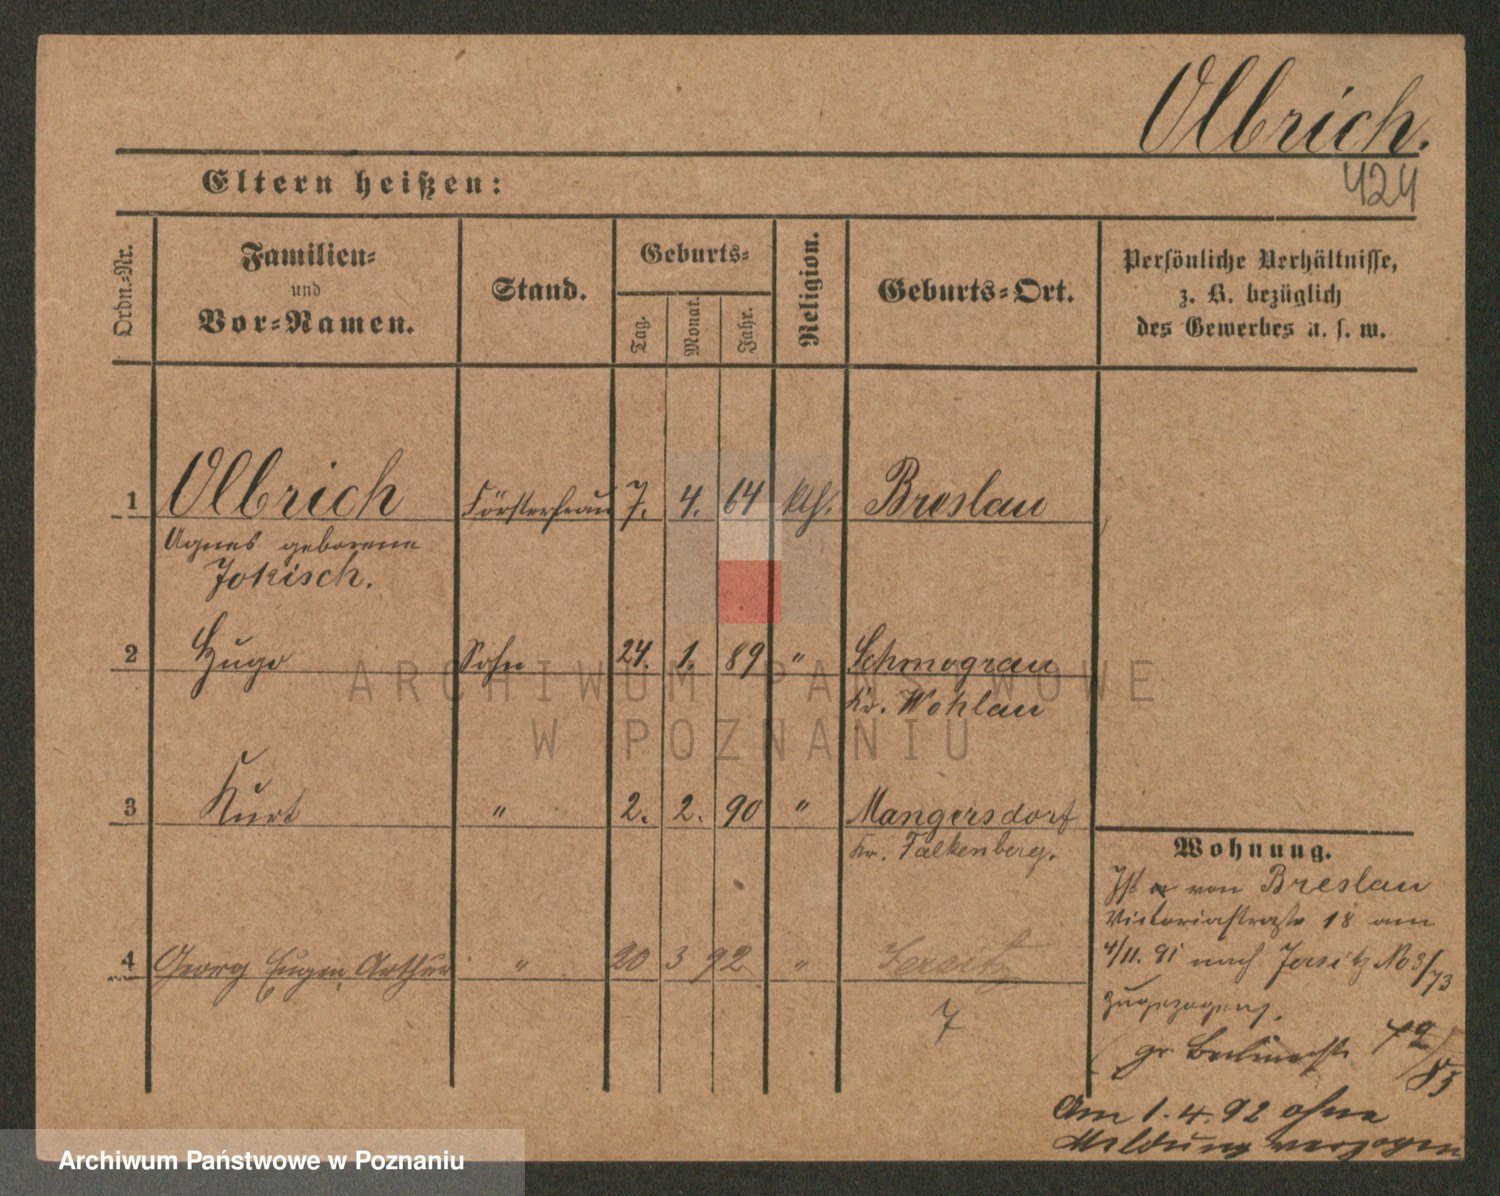 Olbrich.
424
Eltern heißen:
Ordn.-Nr.
Familien-
und
Vor-Namen.
Stand.
Geburts-
Tag.
Monat.
Jahr.
Religion.
Geburts-Ort.
Persönliche Verhältnisse,
z. B. bezüglich
des Gewerbes u. s. w.
1 Olbrich Försterfrau 7. 4. 64 kth. Breslau
Agnes geborene
Jokisch.
2 Hugo Sohn 24. 1. 89 " Schmograu
Kr. Wohlau
3 Kurt " 2. 2. 90 " Mangersdorf
Kr. Falkenberg.
4 Georg Eugen Arthur " 20 3 92 " Jersitz
7
Wohnung.
Ist von Breslau
Victoriastraße 18 am
4/11. 91 nach Jersitz No 3/73
zugezogen.
gr
Am 1. 4. 92 ohne
Meldung verzogen
ARCHIWUM PAŃSTWOWE
W POZNANIU
Archiwum Państwowe w Poznaniu